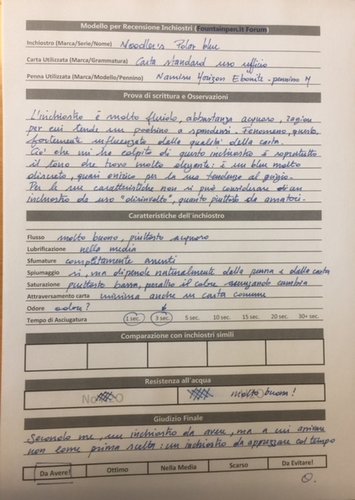 Modello per Recensione Inchiostri (Fountainpen.it Forum)
Inchiostro (Marca/Serie/Nome) Noodler's Polar blue
Carta Utilizzata (Marca/Grammatura) Carta standard uso ufficio
Penna Utilizzata (Marca/Modello/Pennino) Namisu Horizon Ebonite - pennino M
Prova di scrittura e Osservazioni
L'inchiostro è molto fluido, abbastanza acquoso, ragion
per cui tende un pochino a spandersi. Fenomeno, questo,
fortemente influenzato dalla qualità della carta.
Ciò che mi ha colpito di questo inchiostro è soprattutto
il tono che trovo molto elegante: è un blu molto
discreto, quasi onirico per la sua tendenza al grigio.
Per le sue caratteristiche non si può considerare di un
inchiostro da uso "disinvolto", quanto piuttosto da amatori.
Caratteristiche dell'inchiostro
Flusso molto buono, piuttosto acquoso
Lubrificazione nella media
Sfumature completamente assenti
Spiumaggio si, ma dipende naturalmente dalla penna e dalla carta
Saturazione piuttosto bassa, peraltro il colore asciugando cambia
Attraversamento carta minima anche su carta comune
Odore odore?
Tempo di Asciugatura 1 sec. 3 sec. 5 sec. 10 sec. 15 sec. 20 sec. 30+ sec.
Comparazione con inchiostri simili
Resistenza all'acqua
molto buona!
Giudizio Finale
Secondo me, un inchiostro da avere, ma a cui arrivare
non come prima scelta: un inchiostro da apprezzare col tempo
Da Avere! Ottimo Nella Media Scarso Da Evitare!